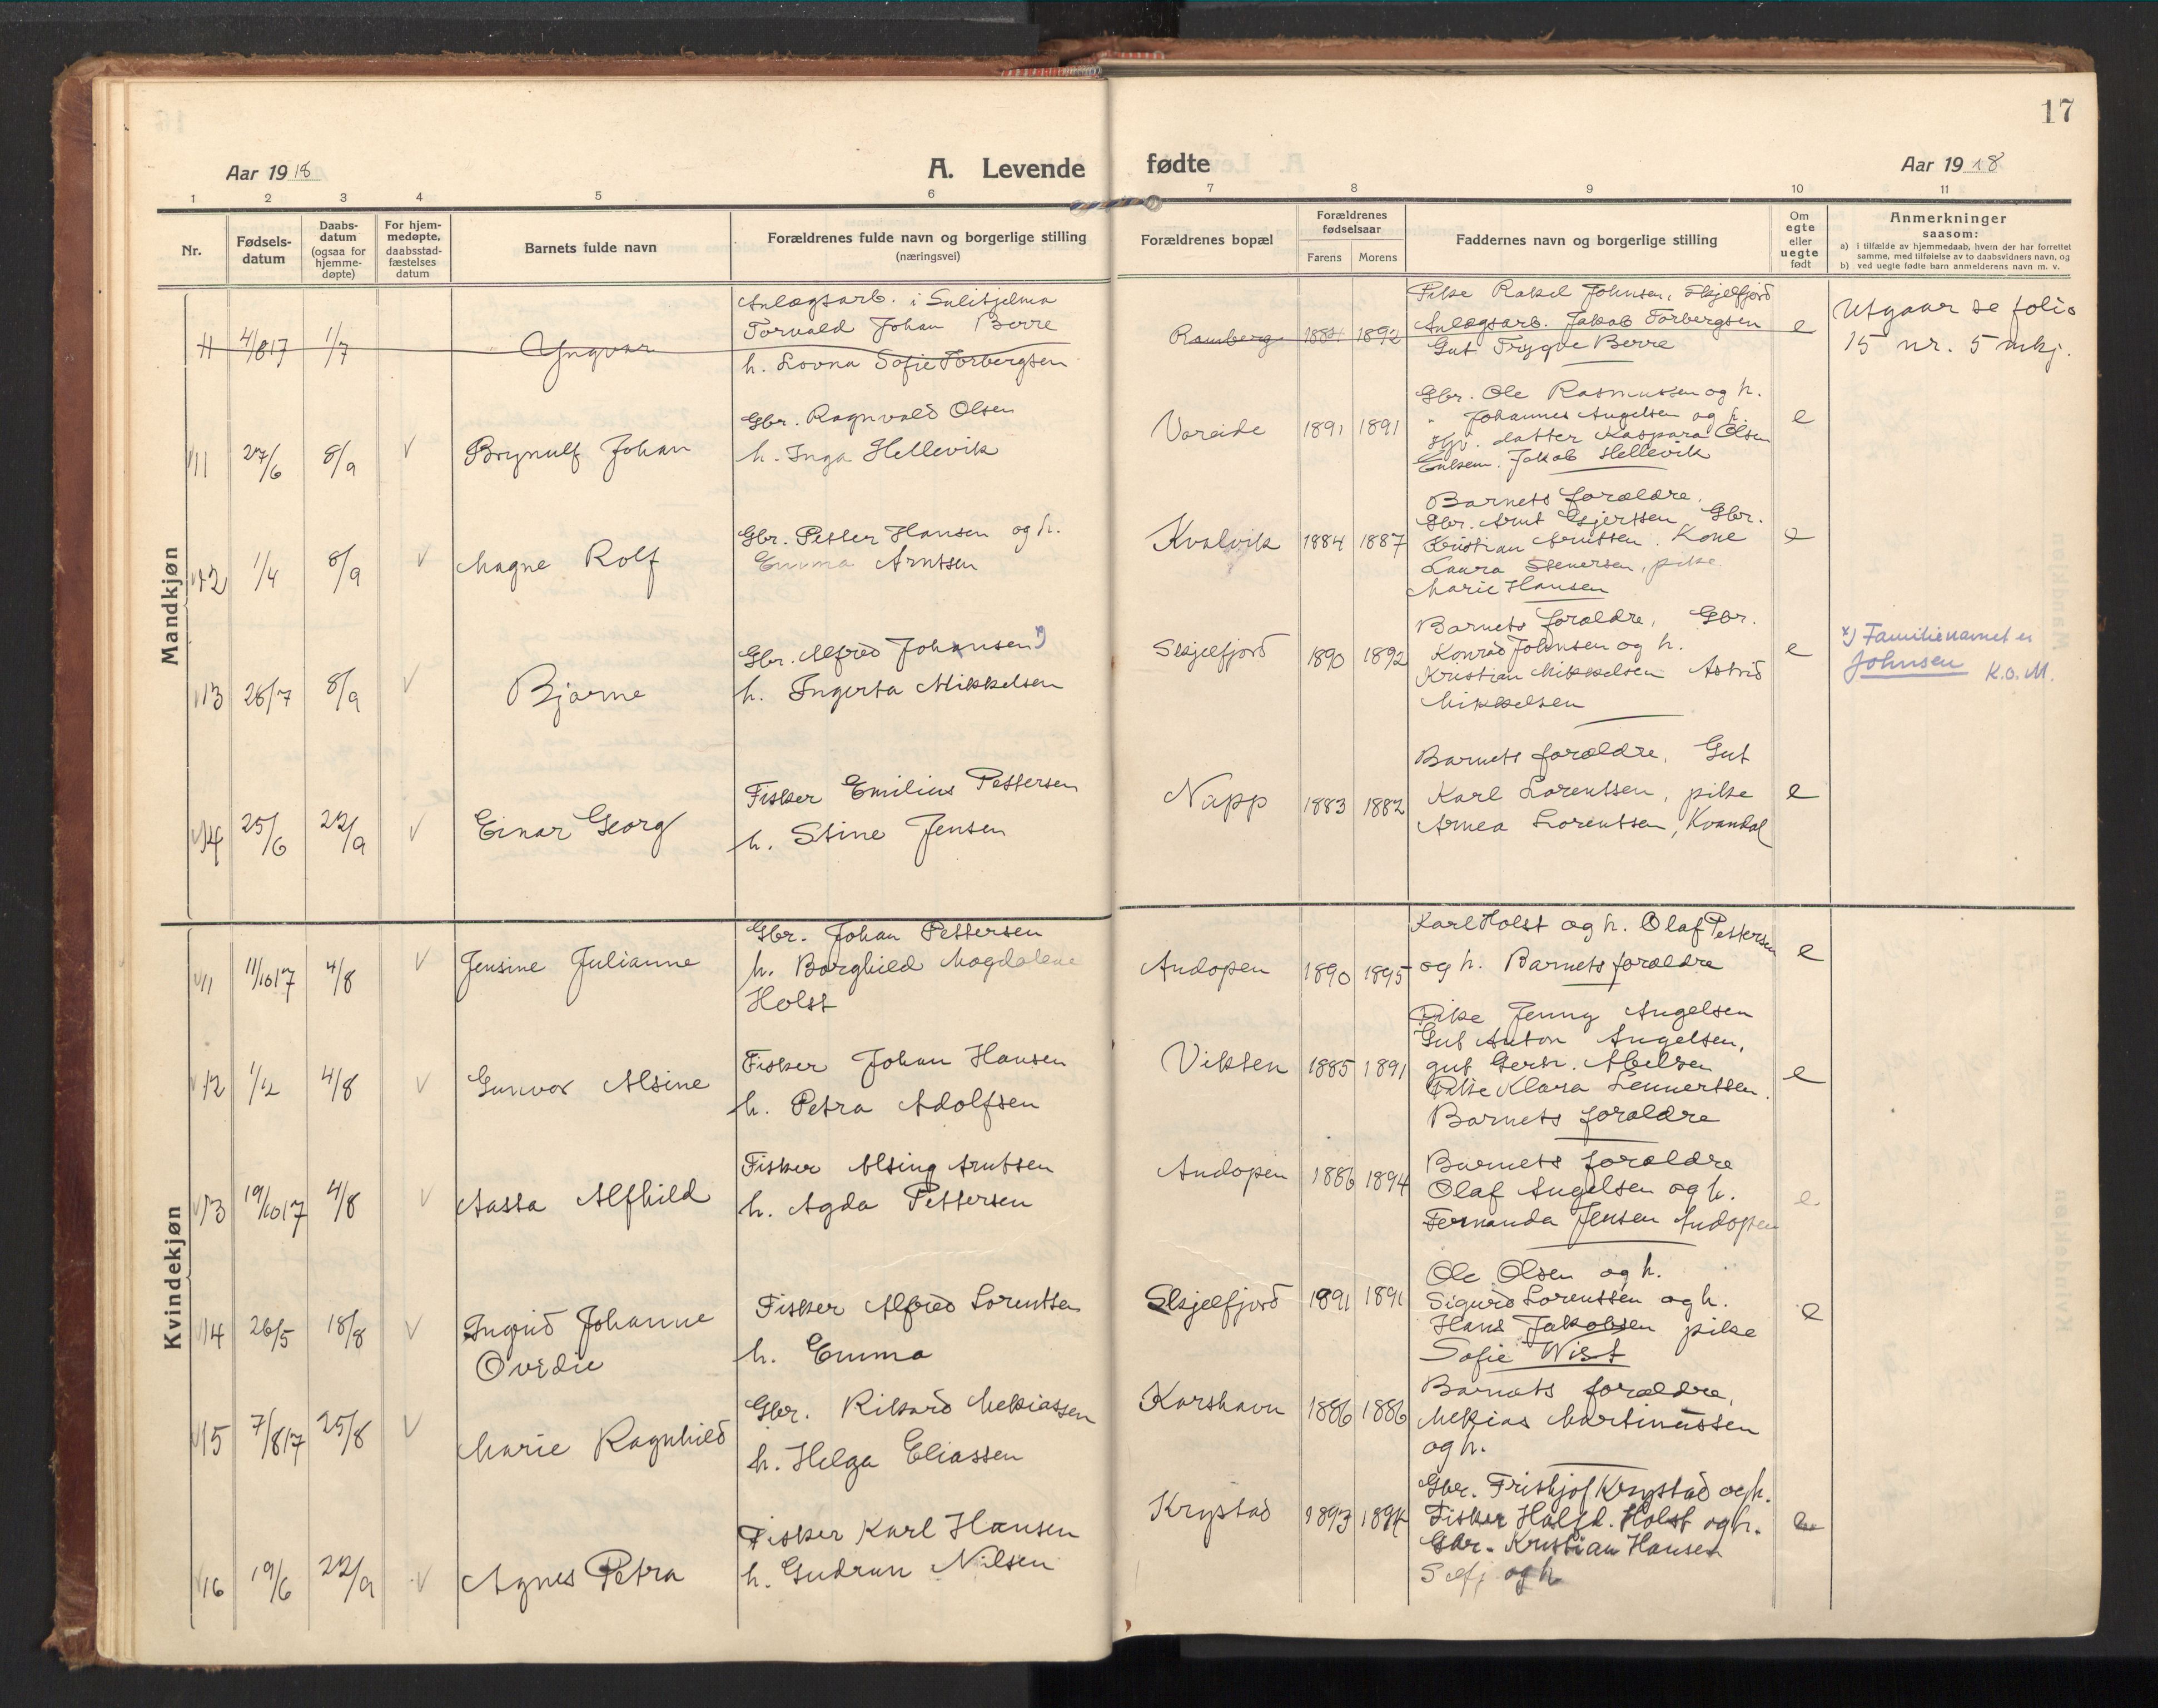 17
Aar 1918
A. Levende
fødte
Aar 1918
1 2 3 4 5 6 7 8 9 10 11
Nr.
Fødsels-
datum
Daabs-
datum
(ogsaa for
hjemme-
døpte)
For hjem-
medøpte,
daabsstad-
fæstelses
datum
Barnets fulde navn
Forældrenes fulde navn og borgerlige stilling
(næringsvei)
Forældrenes bopæl
Forældrenes
fødselsaar
Farens Morens
Faddernes navn og borgerlige stilling
Om
egte
eller
uegte
født
Anmerkninger
saasom:
a) i tilfælde av hjemmedaab, hvem der har forrettet
samme, med tilføielse av to daabsvidners navn, og
b) ved uegte fødte barn anmelderens navn m. v.
Mandkjøn
11 4/8 17 1/7 Yngvar
Anlægsarb. i Sulitjelma
Torvald Johan Berre
h. Lovna Sofie Torbergsen
Ramberg 1884 1892
Pike Rakel Johnsen, Skjelfjord
Anlægsarb. Jakob Torbergsen
Gut Trygve Berre
e
Utgaar se folio
15 nr. 5 mkj.
11 27/6 8/9 Brynulf Johan
Gbr. Ragnvald Olsen
h. Inga Hellevik
Vareide 1891 1891
Gbr. Ole Rasmussen og h.
" Johannes Angelsen og h.
Gjv. datter Kaspara Olsen
Jakob Hellevik
e
12 1/4 8/9 Magne Rolf
Gbr. Petter Hansen og h.
Emma Arntsen
Kvalvik 1884 1887
Barnets forældre,
Gbr. Arnt Gjertsen, Gbr.
Kristian Arntsen. Kone
Laura Stenersen, pike
Marie Hansen
e
13 28/7 8/9 Bjarne
Gbr. Alfred Johansen x)
h. Ingerta Mikkelsen
Skjelfjord 1890 1892
Barnets forældre, Gbr.
Konrad Johnsen og h.
Kristian Mikkelsen Astrid
Mikkelsen
e
x) Familienamnet er
Johnsen K.O.M.
14 25/6 22/9 Einar Georg
Fisker Emilius Pettersen
h. Stine Jensen
Napp 1883 1882
Barnets forældre, Gut
Karl Lorentsen, pike
Arnea Lorentsen, Kvandal
e
Kvindekjøn
11 11/10 17 4/8 Jensine Julianne
Gbr. Johan Pettersen
h. Borghild Magdalene
Holst
Andopen 1890 1895
Karl Holst og h. Olaf Pettersen
og h. Barnets forældre
e
12 1/2 4/8 Gunvor Alsine
Fisker Johan Hansen
h. Petra Adolfsen
Vikten 1885 1891
Pike Jenny Angelsen
Gut Anton Angelsen,
gut Gerh. Abelsen
Pike Klara Lennertsen.
Barnets forældre
e
13 19/10 17 4/8 Aassa Alfhild
Fisker Alsing Arntsen
h. Agda Pettersen
Andopen 1886 1894
Barnets forældre
Olaf Angelsen og h.
Fernanda Jensen Andopen
e
14 26/5 18/8 Ingrid Johanne
Ovedie
Fisker Alfred Lorentsen
h. Emma
Skjelfjord 1891 1891
Ole Olsen og h.
Sigurd Lorentsen og h.
Hans Jakobsen pike
Sofie Wist
e
15 7/8 17 25/8 Marie Ragnhild
Gbr. Rikard Mekiassen
h. Helga Eliassen
Karshavn 1886 1886
Barnets forældre,
Mekias Martinussen
og h.
16 19/6 22/9 Agnes Petra
Fisker Karl Hansen
h. Gudrun Nilsen
Krystad 1893 1894
Gbr. Frithjof Krystad og h.
Fisker Halfd. Holst og h.
Gbr. Kristian Hansen
Selfj og h
e
Kvindekjøn